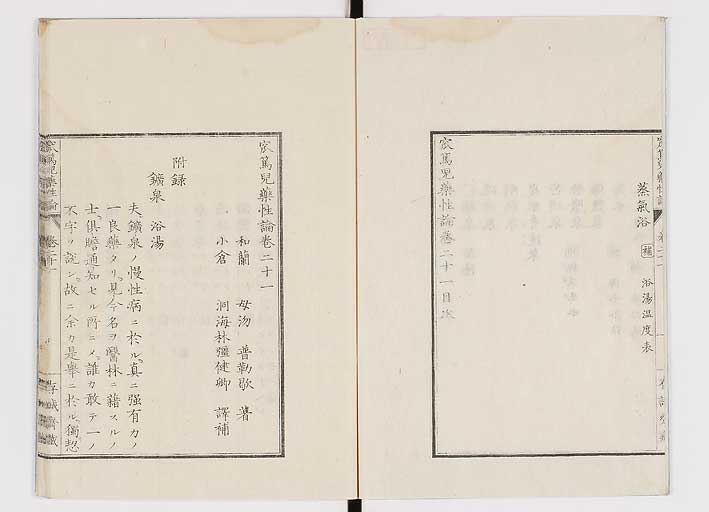 蒸氣浴 補 浴湯温度表
窊篤兒藥性論卷二十一目次
窊篤兒藥性論卷二十一
和蘭 母沕 普勒歇 著
小倉 洞海林彊健卿 譯補
附録
鑛泉 浴湯
夫鑛泉ノ慢性病ニ於ル眞ニ强有力ノ
一良藥タリ見今名ヲ醫林ニ藉スルノ
士俱瞻通知セル所ニメ誰カ敢テ一ノ
不字ヲ說ン故ニ余カ是擧ニ於ル獨恝
窊篤兒藥性論 卷二十一